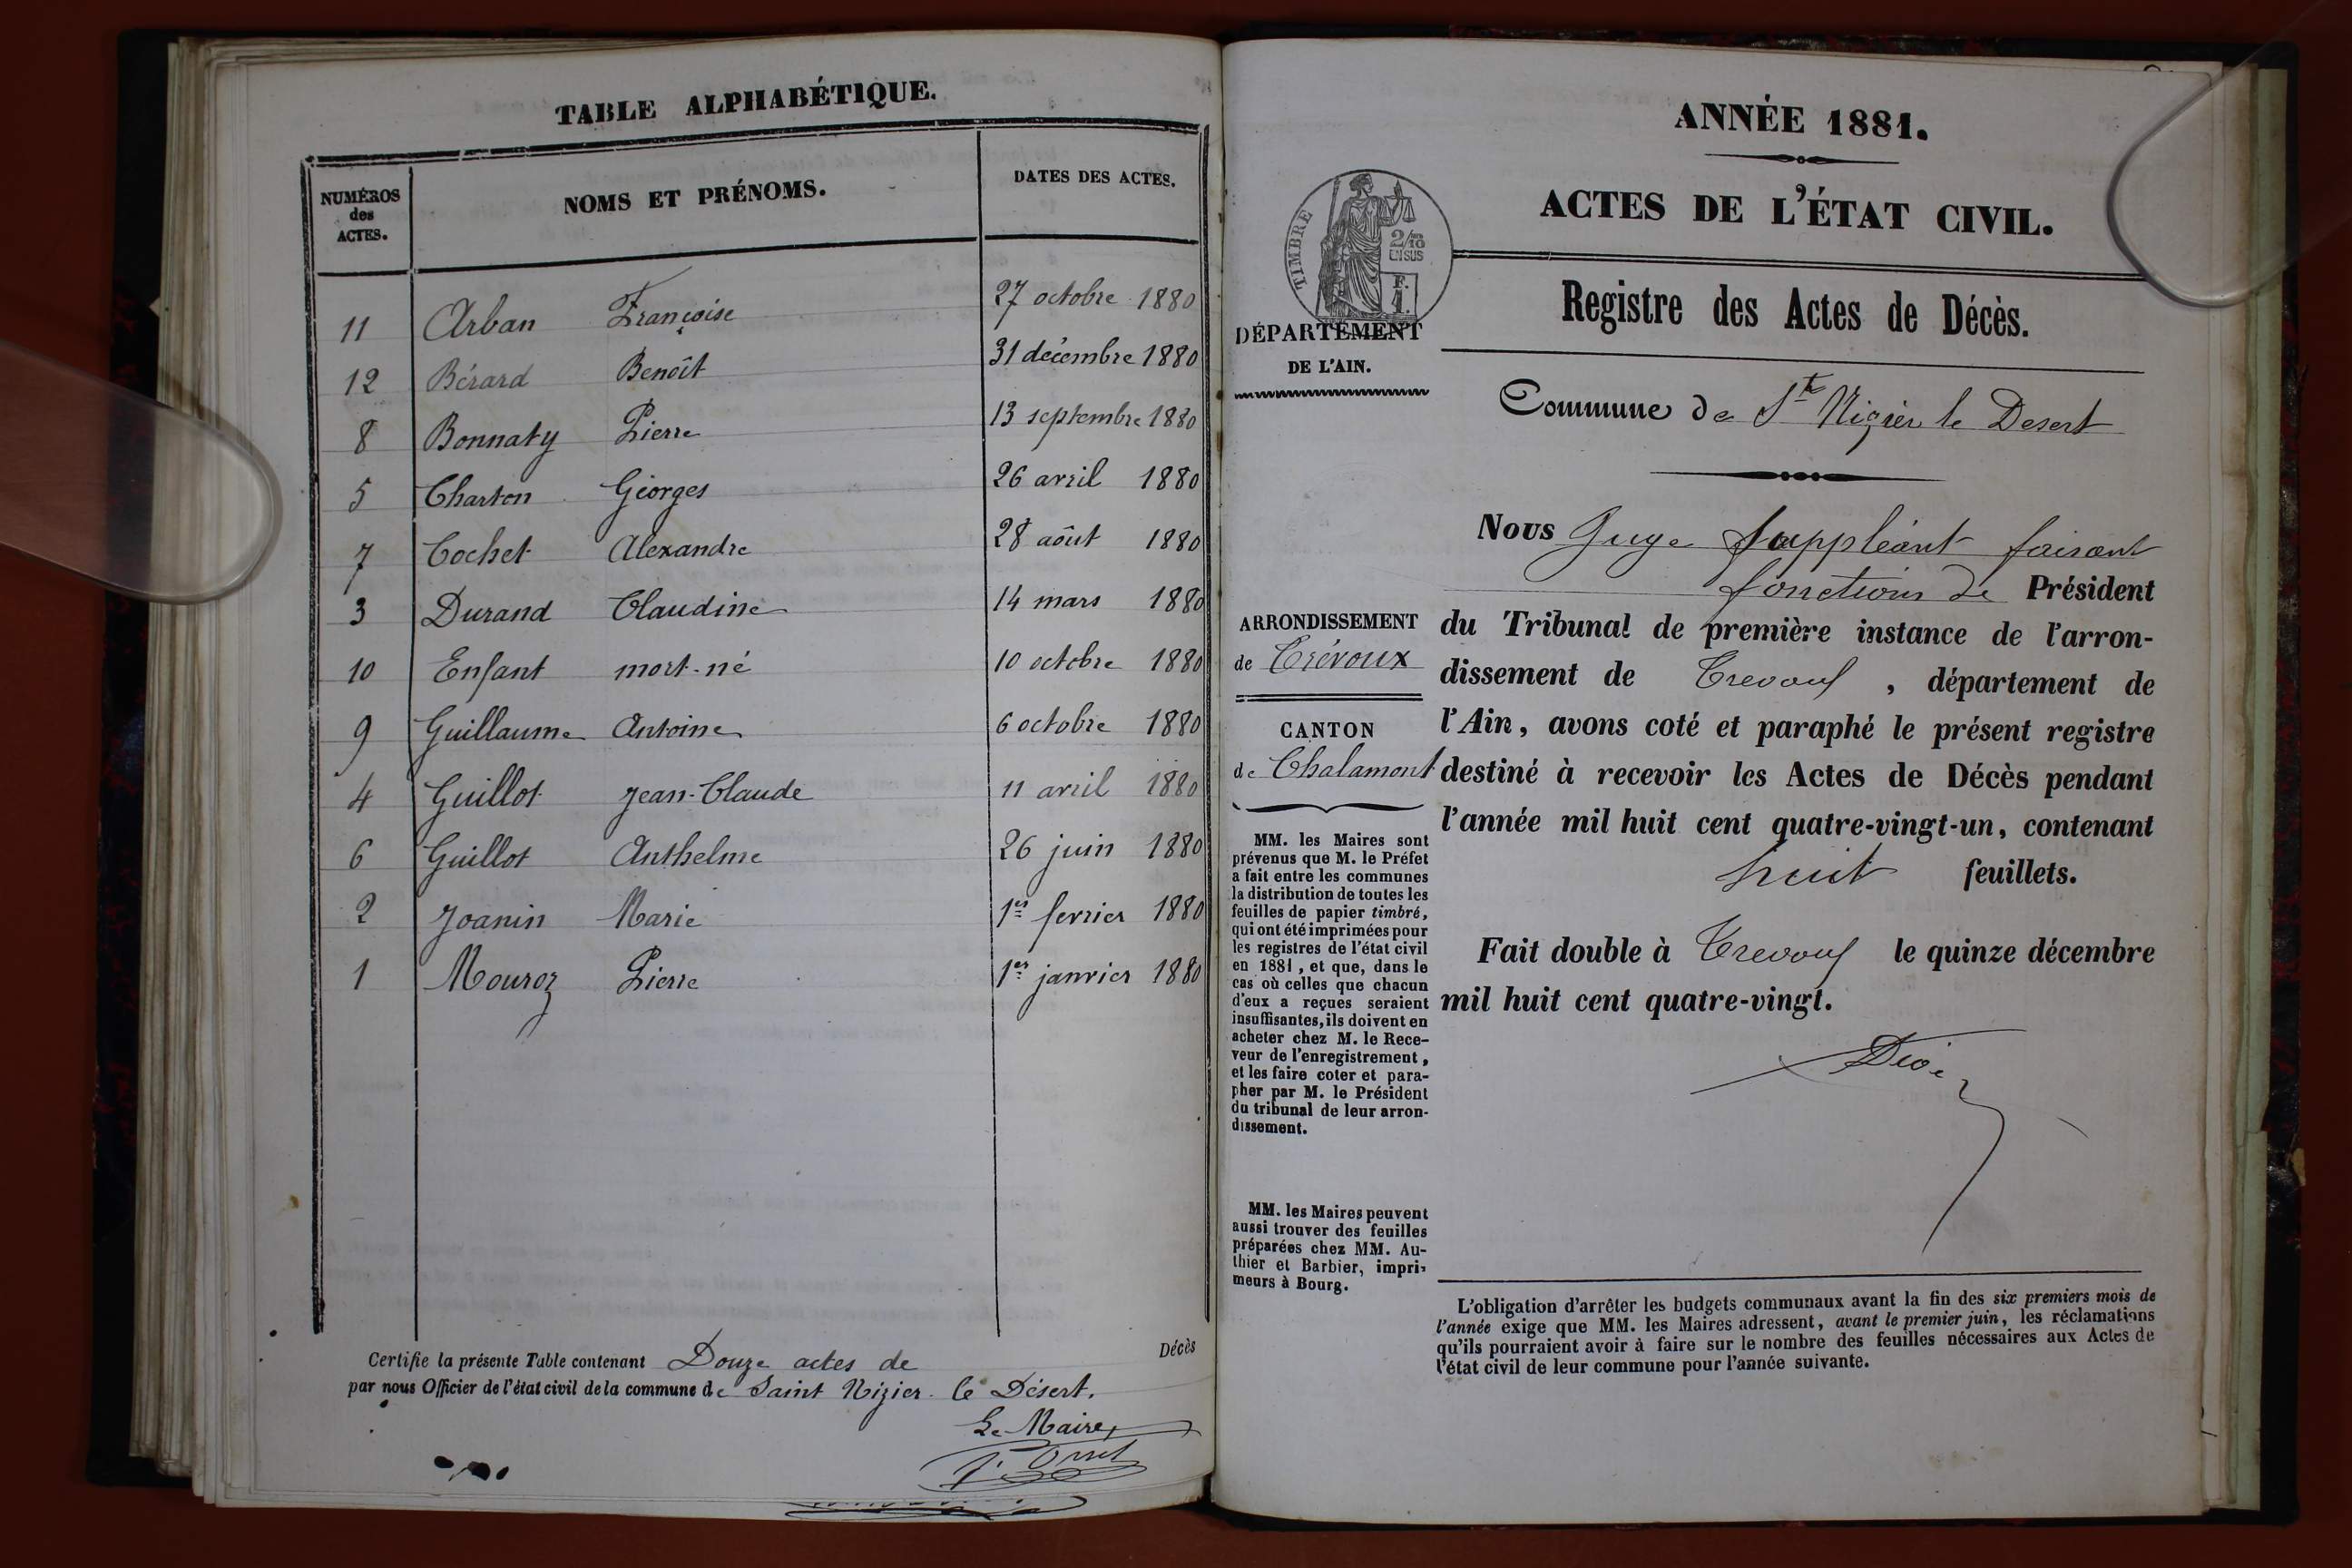 TABLE ALPHABÉTIQUE.
NUMÉROS
des
ACTES.
NOMS ET PRÉNOMS.
DATES DES ACTES.
11 Arban Françoise 27 octobre 1880
12 Bérard Benoît 31 décembre 1880
8 Bonnaty Pierre 13 septembre 1880
5 Charton Géorges 26 avril 1880
7 Cochet Alexandre 28 aôut 1880
3 Durand Claudine 14 mars 1880
10 Enfant mort-né 10 octobre 1880
9 Guillaume Antoine 6 octobre 1880
4 Guillot Jean-Claude 11 avril 1880
6 Guillot Anthelme 26 juin 1880
2 Joanin Marie 1er fevrier 1880
1 Mouroz Pierre 1er janvier 1880
Certifie la présente Table contenant Douze actes de Décès
par nous Officier de l'état civil de la commune de Saint Nizier le Désert.
Le Maire,
ANNÉE 1881.
ACTES DE L'ÉTAT CIVIL.
TIMBRE
2/10
EN SUS
F.
1.
DÉPARTEMENT
DE L'AIN.
Registre des Actes de Décès.
Commune de St Nizier le Desert
ARRONDISSEMENT
de Trévoux
CANTON
de Chalamont
MM. les Maires sont
prévenus que M. le Préfet
a fait entre les communes
la distribution de toutes les
feuilles de papier timbré,
qui ont été imprimées pour
les registres de l'état civil
en 1881, et que, dans le
cas où celles que chacun
d'eux a reçues seraient
insuffisantes, ils doivent en
acheter chez M. le Rece-
veur de l'enregistrement,
et les faire coter et para-
pher par M. le Président
du tribunal de leur arron-
dissement.
MM. les Maires peuvent
aussi trouver des feuilles
préparées chez MM. Au-
thier et Barbier, impri-
meurs à Bourg.
Nous Juge Suppléant faisant
fonctions de Président
du Tribunal de première instance de l'arron-
dissement de Trevoux, département de
l'Ain, avons coté et paraphé le présent registre
destiné à recevoir les Actes de Décès pendant
l'année mil huit cent quatre-vingt-un, contenant
huit feuillets.
Fait double à Trevoux le quinze décembre
mil huit cent quatre-vingt.
L'obligation d'arrêter les budgets communaux avant la fin des six premiers mois de
l'année exige que MM. les Maires adressent, avant le premier juin, les réclamations
qu'ils pourraient avoir à faire sur le nombre des feuilles nécessaires aux Actes de
l'état civil de leur commune pour l'année suivante.